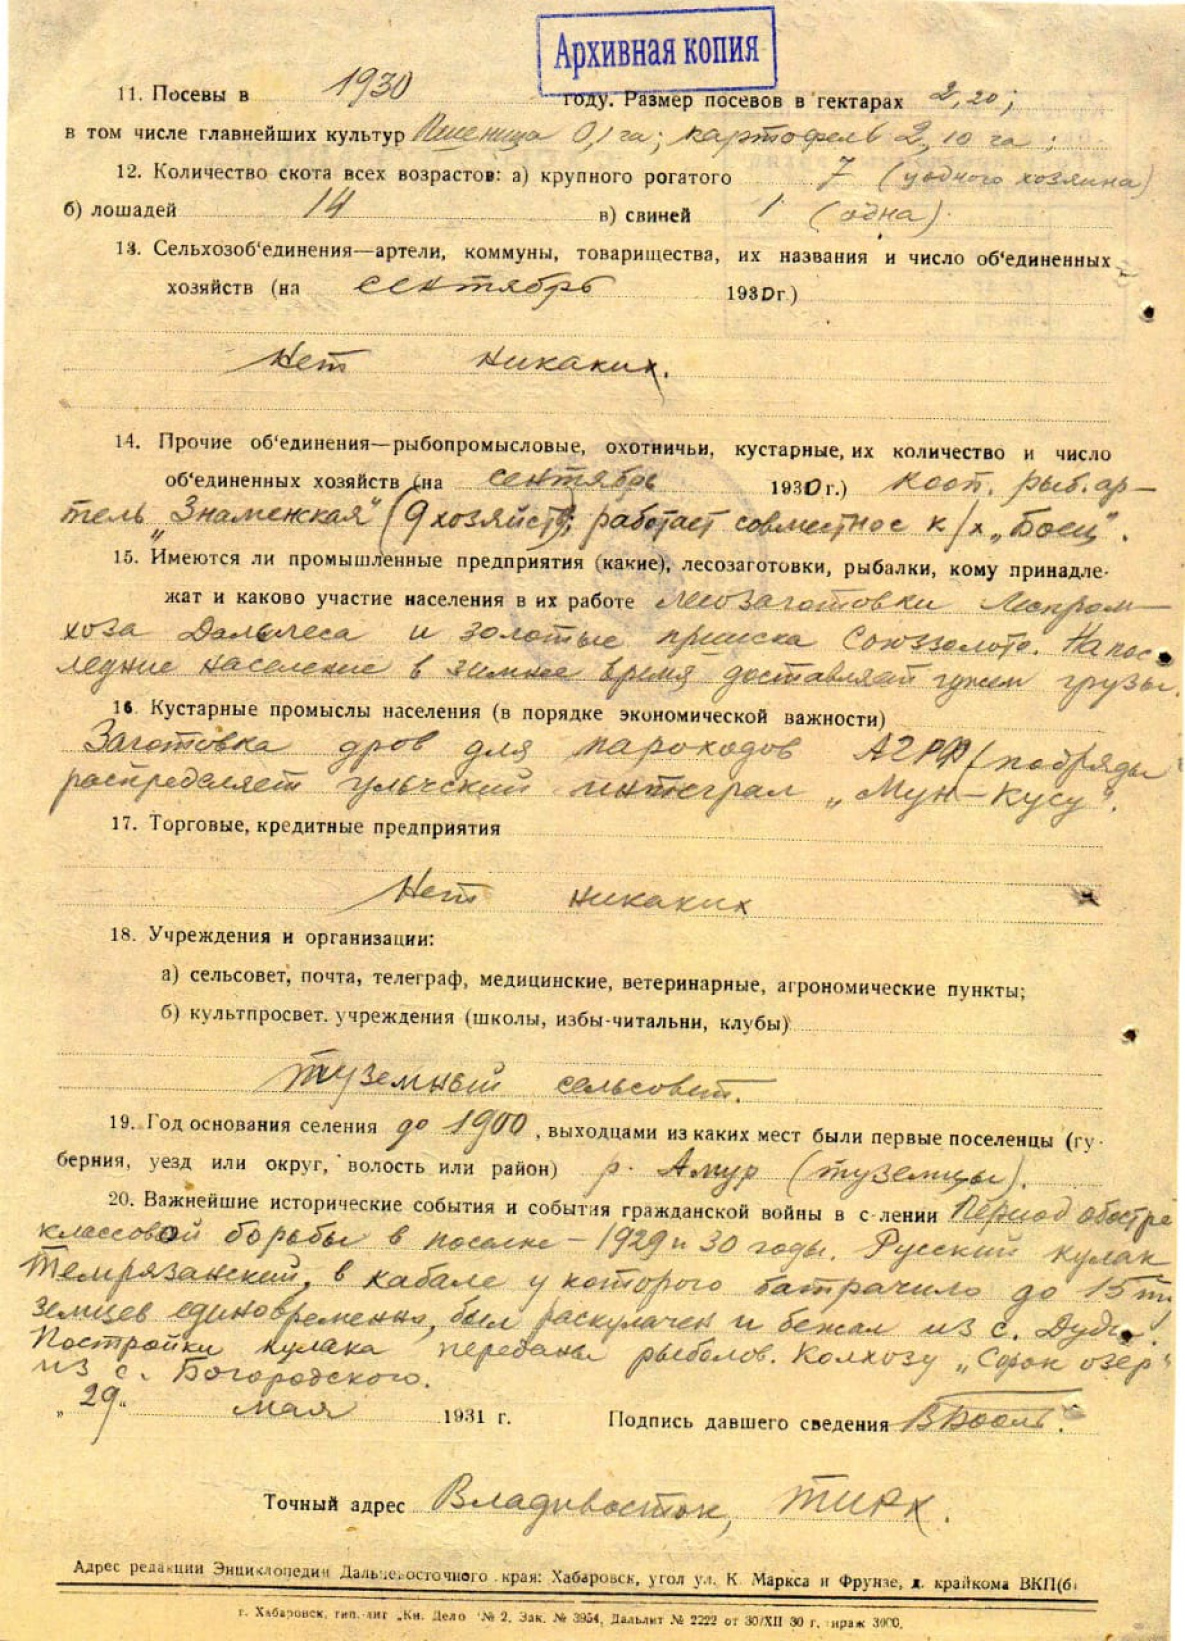 Архивная копия
11. Посевы в 1930 году. Размер посевов в гектарах 2,20;
в том числе главнейших культур Пшеница 0,1 га; картофель 2,10 га;
12. Количество скота всех возрастов: а) крупного рогатого 7 (у одного хозяина)
б) лошадей 14 в) свиней 1 (одна).
13. Сельхозоб'единения—артели, коммуны, товарищества, их названия и число об'единенных
хозяйств (на сентябрь 1930 г.)
Нет никаких.
14. Прочие об'единения—рыбопромысловые, охотничьи, кустарные, их количество и число
об'единенных хозяйств (на сентябрь 1930 г.) Кооп. рыб. ар-
тель „Знаменская" (9 хозяйств); работает совместное к/х „Боец".
15. Имеются ли промышленные предприятия (какие), лесозаготовки, рыбалки, кому принадле-
жат и каково участие населения в их работе Лесозаготовки Леспром-
хоза Дальлеса и золотые прииска Союззолото. На пос-
ледние население в зимнее время доставляет гужем грузы.
16. Кустарные промыслы населения (в порядке экономической важности)
Заготовка дров для пароходов АГРФ (подряды
распределяет ульчский интеграл „Мун-Кусу".
17. Торговые, кредитные предприятия
Нет никаких
18. Учреждения и организации:
а) сельсовет, почта, телеграф, медицинские, ветеринарные, агрономические пункты;
б) культпросвет. учреждения (школы, избы-читальни, клубы)
Туземный сельсовет.
19. Год основания селения до 1900, выходцами из каких мест были первые поселенцы (гу-
берния, уезд или округ, волость или район) р. Амур (туземцы).
20. Важнейшие исторические события и события гражданской войны в с лении Период обостре
классовой борьбы в поселке — 1929 и 30 годы. Русский кулак
Темрязанский, в кабале у которого батрачило до 15 ту
земцев единовременно, был раскулачен и бежал из с. Дуди.
Постройки кулака переданы рыболов. Колхозу „Сорок озер"
из с. Богородского.
„29" мая 1931 г. Подпись давшего сведения
Точный адрес Владивосток, ТИРХ.
Адрес редакции Энциклопедии Дальневосточного края: Хабаровск, угол ул. К Маркса и Фрунзе, д. крайкома ВКП(б)
г. Хабаровск, тип.-лит „Кн. Дело" № 2. Зак. № 3954, Дальлит № 2222 от 30/XII 30 г. тираж 3000.